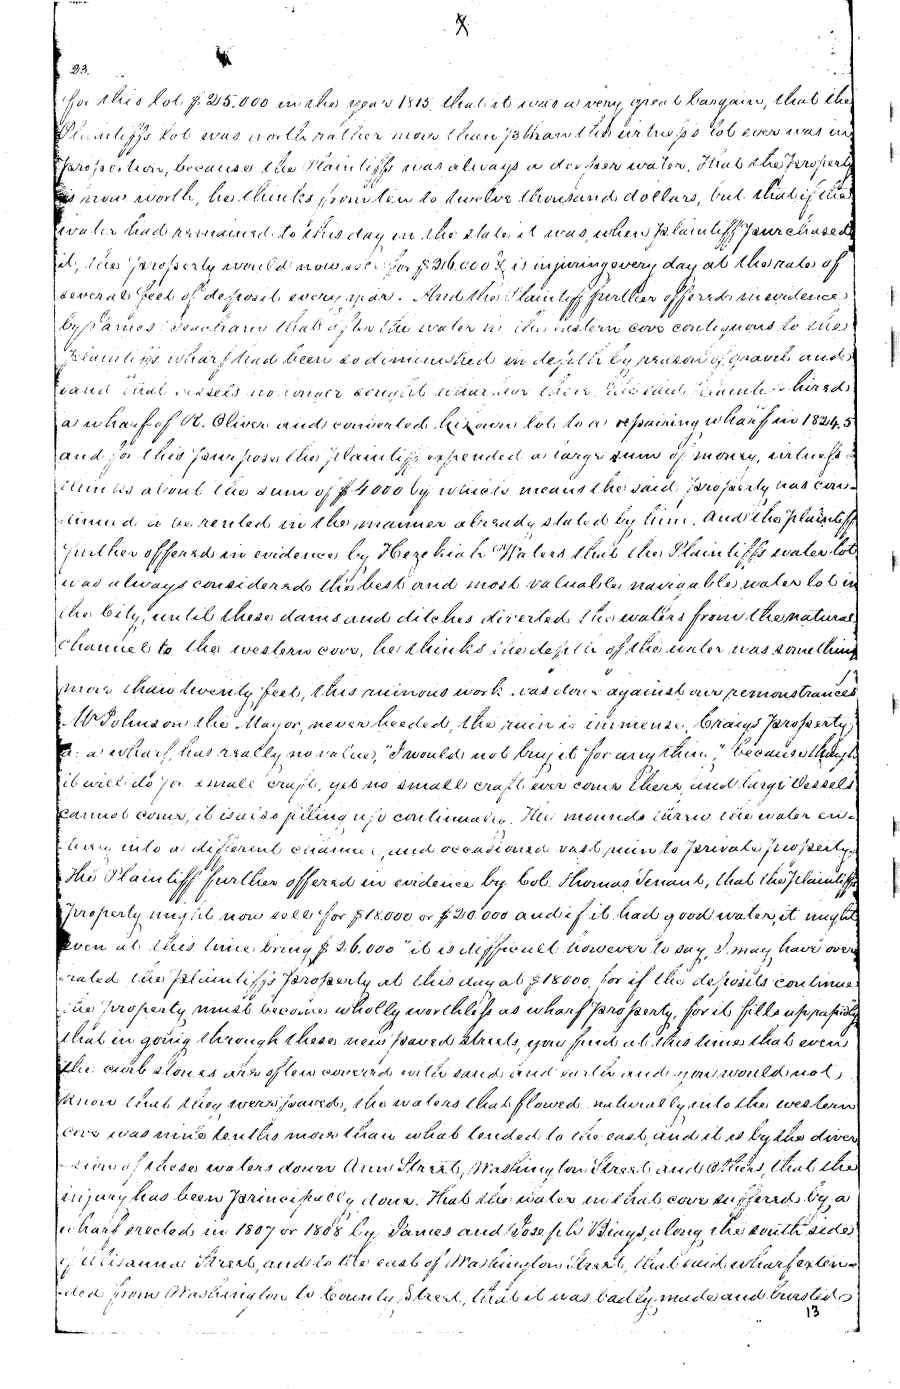 X
23.
for this lot $25.000 in the year 1815, that it was a very great bargain, that the
Plaintiff's lot was worth rather more than than the witness's lot ever was in
proportion, because the Plaintiffs was always a deeper water, that the property
is now worth, he thinks from ten to twelve thousand dollars, but that if the
water had remained to this day in the state it was when Plaintiff purchased
it, the property would now sell for $26.000 & is injuring every day at the rate of
several feet of deposit every year. And the Plaintiff further offered in evidence
by James Beacham that after the water in the eastern cove contiguous to the
Plaintiffs wharf had been so diminished in depth by reason of gravel and
sand that vessels no longer sought wharfage there the said Plaintiff hired
a wharf of R. Oliver and converted his own lot to a repairing wharf in 1824.5
and for this purpose the plaintiff expended a large sum of money, witness
thinks about the sum of $4000 by which means the said property has con-
-tinued to be rented in the manner already stated by him. And the plaintiff
further offered in evidence by Hezekiah Waters that the Plaintiff's water lot
was always considered the best and most valuable navigable water lot in
the City, until these dams and ditches diverted the waters from the natural
channel to the western cove, he thinks the depth of the water was something
more than twenty feet, this ruinous work was done against our remonstrances
Mr Johnson the Mayor, never heeded, the ruin is immense, Craigs property
as a wharf, has really no value, "I would not buy it for any thing," because though
it will do for small craft, yet no small craft ever come there, and large Vessels
cannot come, it is also filling up continually. The mounds turn the water en-
-tirely into a different channel, and occasioned vast ruin to private property.
The Plaintiff further offered in evidence by Col. Thomas Tenant, that the plaintiffs
property might now sell for $18.000 or $20.000 and if it had good water, it might
even at this time bring $26.000 "it is difficult however to say, I may have over
-rated the plaintiff's property at this day at $18000, for if the deposits continue
the property must become wholly worthless as wharf property, for it fills up rapidly
that in going through these new paved streets, you find at this time that even
the curb stones are often covered with sand and earth and you would not
know that they were paved, the waters that flowed naturally into the western
cove was nine tenths more than what tended to the east, and it is by the diver
-sion of these waters down Ann Street, Washington Street and Others, that the
injury has been principally done. That the water in that cove suffered by a
wharf erected in 1807 or 1808 by James and Joseph Biays, along the south side
of Alisanna Street, and to the east of Washington Street, that said wharf exten-
-ded from Washington to County Street, that it was badly made and bursted
13